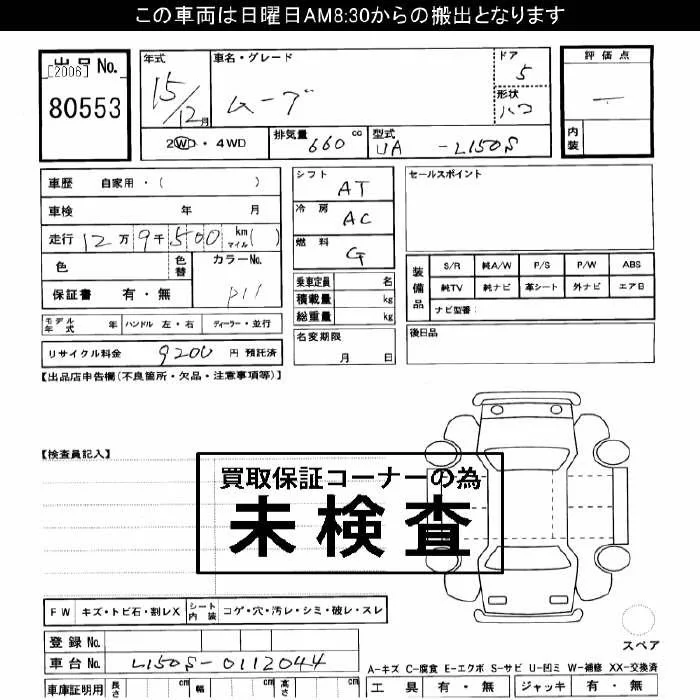 この車両は日曜日AM8:30からの搬出となります
出品 No.
[2006]
80553
年式
15/12月
車名・グレード
ムーブ
ドア
5
形状
ハコ
評価点
―
内装
2WD・4WD
排気量 660 cc
型式 UA -L150S
車歴 自家用・( )
車検 年 月
走行 12万9千500 km マイル( )
色
色替
カラーNo.
P11
保証書 有・無
モデル年式 年 ハンドル 左・右 ディーラー・並行
リサイクル料金 9200 円 預託済
シフト AT
冷房 AC
燃料 G
乗車定員 名
積載量 kg
総重量 kg
名変期限
月 日
セールスポイント
装備品
S/R 純A/W P/S P/W ABS
純TV 純ナビ 革シート 外ナビ エアB
ナビ型番:
後日品
【出品店申告欄(不良箇所・欠品・注意事項等)】
【検査員記入】
買取保証コーナーの為
未検査
FW キズ・トビ石・割レX シート内装 コゲ・穴・汚レ・シミ・破レ・スレ
登録 No.
車台 No. L150S-0112044
車庫証明用 長さ cm 幅 cm 高さ cm
スペア
A-キズ C-腐食 E-エクボ S-サビ U-凹ミ W-補修 XX-交換済
工具 有・無 ジャッキ 有・無